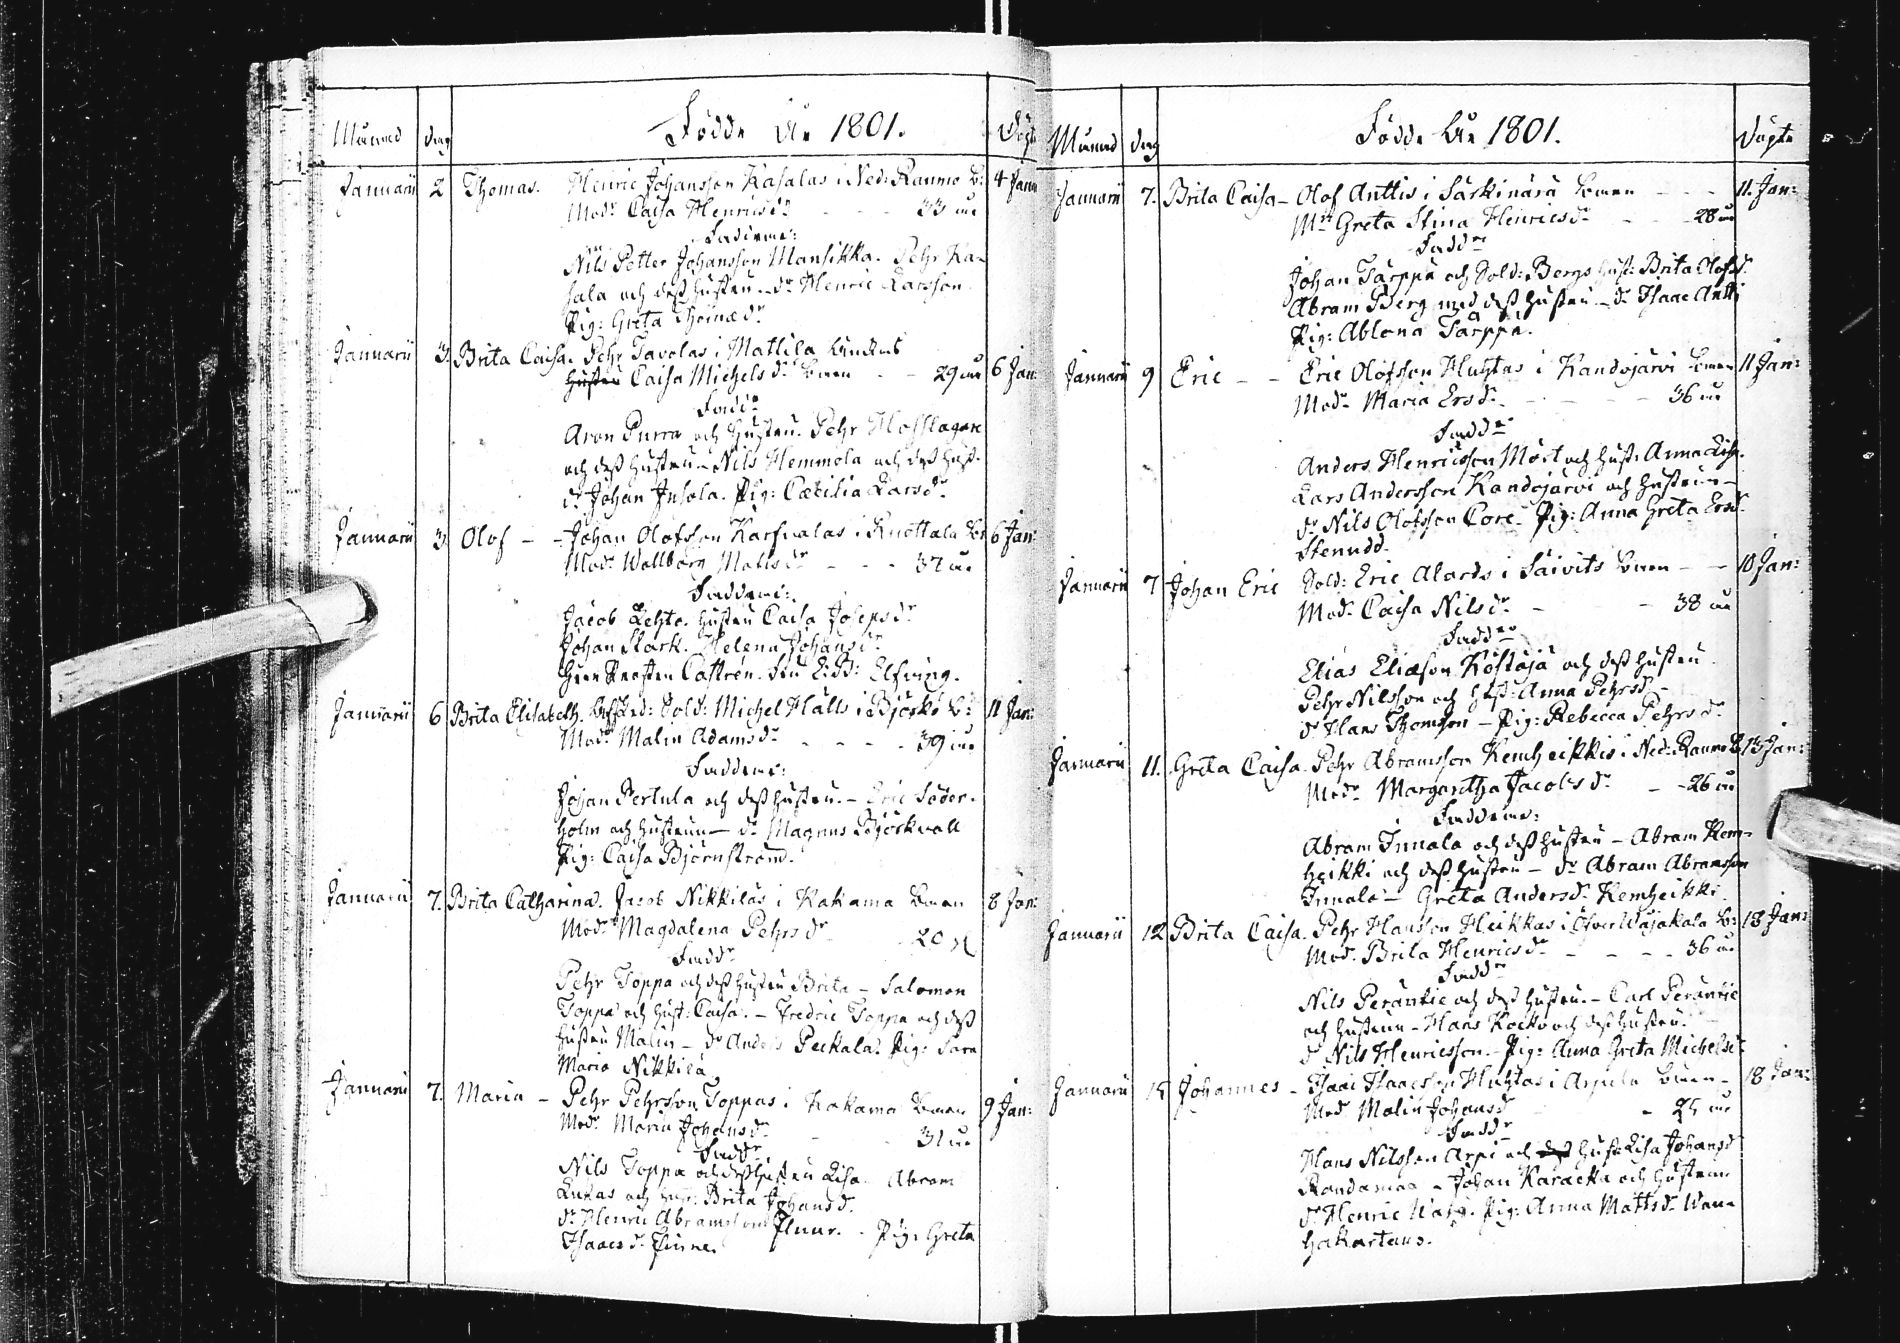 Födde År 1801.
Månad Dag Döpt
Januarii 2 Thomas. Henric Johansson Kasalas i Ned: Raumo B: 4 Janu
Modr Caisa Henricsdr - - - 33 år
Faddrarne:
Nils Petter Johansson Mansikka. Pehr Ka-
sala och dess hustru. - dr Henric Larsson.
Pig: Greta Thomædr
Januarii 3. Brita Caisa. Pehr Tavolas i Mattila
hustru Caisa Michelsdr - - 29 år 6 Jan:
Faddr
Aron Purra och hustru. Pehr Hofslagare
och dess hustru - Nils Hemmola och dess hust.
dr Johan Jusola. Pig: Cæcilia Larsdr
Januarii 3. Olof - - Johan Olofsson Karsualas i Knottala 6 Jan:
Modr Wallborg Mattsdr - - - 37 år
Faddrarne:
Jacob Lehto. hustru Caisa Josepsdr
Johan Stark. Helena Johansdr
Castrén. Elfving.
Januarii 6 Brita Elisabeth. Sold: Michel Hälls i Björkö B: 11 Jan:
Modr Malin Adamsdr - - - - 39 år
Faddrarne:
Johan Pertula och dess hustru. - Eric Söder-
holm och hustrun - dr Magnus Björkvall
Pig: Caisa Björnström.
Januarii 7. Brita Catharina. Jacob Nikkiläs i Kakama 8 Jan:
Modr Magdalena Pehrsdr 20
Faddr
Pehr Toppa och dess hustru Brita - Salomon
Toppa och hust: Caisa. - Fredric Toppa och dess
hustru Malin - dr Anders Peckala. Pig: Sara
Maria Nikkilä.
Januarii 7. Maria - Pehr Pehrsson Toppas i Kakama 9 Jan:
Modr Maria Johansdr - - 31 år
Faddr
Nils Toppa och dess hustru Lisa. Abram
Lukas och hust: Brita Johansdr
dr Henric Abramsson Fluur. - Pig: Greta
Isaacsdr Pinne.
Födde År 1801.
Månad Dag Döpte
Januarii 7. Brita Caisa - Olof Anttis i Särkinärä - - - 11. Jan:
Mr Greta Stina Henricsdr - - 28 år
Faddr
Johan Tärppä och Sold: Bergs hust: Brita Olofsdr
Abram Berg med dess hustru - dr Isaac Antti
Pig: Ablona Tärppä.
Januarii 9 Eric - - Eric Olofsson Huhtas i Kandojärvi 11 Jan:
Modr Maria Ersdr - - - - 36 år
Faddr
Anders Henricsson Mört och hust: Anna Lisa.
Lars Andersson Kandojärvi och hustrun -
dr Nils Olofsson Core. Pig: Anna Greta Ersdr
Stenudd.
Januarii 7 Johan Eric Sold: Eric Alards i Säivits - - 10 Jan:
Modr Caisa Nilsdr - - 38 år
Faddr
Elias Eliæson Köstäjä och dess hustru
Pehr Nilsson och hust: Anna Pehrsdr -
dr Hans Thomsson - Pig: Rebecca Pehrsdr
Januarii 11. Greta Caisa. Pehr Abramsson Kemheikkis i Ned: Raumo B. 13 Jan:
Modr Margaretha Jacobsdr - - 26 år
Faddrarne:
Abram Innala och dess hustru - Abram Kem-
heikki och dess hustru - dr Abram Abramsson
Innala - Greta Andersdr Kemheikki.
Januarii 12 Brita Caisa. Pehr Hansson Heikkas i Öfver Wojakala B: 18 Jan:
Modr Brita Henricsdr - - - - 36 år
Faddr
Nils Peräntie och dess hustru. - Carl Peräntie
och hustrun - Hans Kocko och dess hustru.
dr Nils Henricsson. - Pig: Anna Greta Michelsdr
Januarii Johannes - Isaac Isaacsson Huhtas i Arpela - 18 Jan:
Modr Malin Johansdr - år
Faddr
Hans Nilsson Arpi och hust: Lisa Johansdr
Kandamaa - Johan Karacka och hustrun
dr Henric Pig: Anna Mattsdr